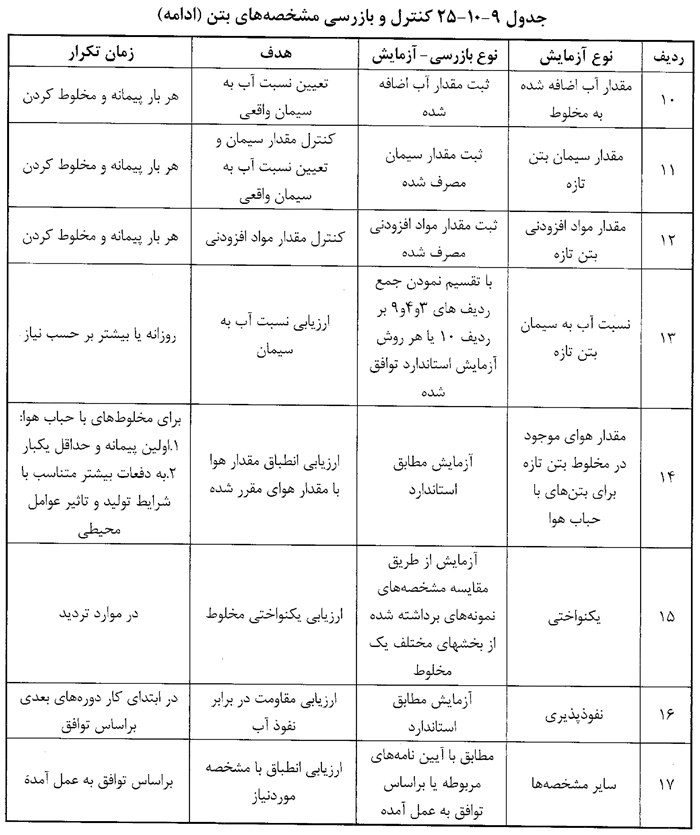 جدول ۹-۱۰-۲۵ کنترل و بازرسی مشخصه‌های بتن (ادامه)
ردیف
نوع آزمایش
نوع بازرسی- آزمایش
هدف
زمان تکرار
۱۰
مقدار آب اضافه شده
به مخلوط
ثبت مقدار آب اضافه
شده
تعیین نسبت آب به
سیمان واقعی
هر بار پیمانه و مخلوط کردن
۱۱
مقدار سیمان بتن
تازه
ثبت مقدار سیمان
مصرف شده
کنترل مقدار سیمان و
تعیین نسبت آب به
سیمان واقعی
هر بار پیمانه و مخلوط کردن
۱۲
مقدار مواد افزودنی
بتن تازه
ثبت مقدار مواد افزودنی
مصرف شده
کنترل مقدار مواد افزودنی
هر بار پیمانه و مخلوط کردن
۱۳
نسبت آب به سیمان
بتن تازه
با تقسیم نمودن جمع
ردیف های ۳و۴و۹ بر
ردیف ۱۰ یا هر روش
آزمایش استاندارد توافق
شده
ارزیابی نسبت آب به
سیمان
روزانه یا بیشتر بر حسب نیاز
۱۴
مقدار هوای موجود
در مخلوط بتن تازه
برای بتن‌های با
حباب هوا
آزمایش مطابق
استاندارد
ارزیابی انطباق مقدار هوا
با مقدار هوای مقرر شده
برای مخلوط‌های با حباب هوا:
۱.اولین پیمانه و حداقل یکبار
۲.به دفعات بیشتر متناسب با
شرایط تولید و تاثیر عوامل
محیطی
۱۵
یکنواختی
آزمایش از طریق
مقایسه مشخصه‌های
نمونه‌های برداشته شده
از بخشهای مختلف یک
مخلوط
ارزیابی یکنواختی مخلوط
در موارد تردید
۱۶
نفوذپذیری
آزمایش مطابق
استاندارد
ارزیابی مقاومت در برابر
نفوذ آب
در ابتدای کار دوره‌های بعدی
براساس توافق
۱۷
سایر مشخصه‌ها
مطابق با آیین نامه‌های
مربوطه یا براساس
توافق به عمل آمده
ارزیابی انطباق با مشخصه
موردنیاز
براساس توافق به عمل آمده